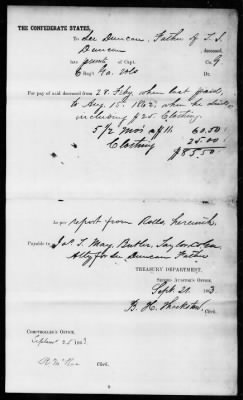 THE CONFEDERATE STATES,
To Lee Duncan, Father of T. J.
Duncan deceased.
late private of Capt. Co. G
6 Reg't Ga. Vols Dr.
For pay of said deceased from 28 Feby, when last paid,
to Aug 15, 1862, when he died
including $25. Clothing.
5 1/2 Mos at 11. 60.50
Clothing 25.00
$85.50
As per report from Rolls, herewith
Payable to Jas. T. May, Butler, Taylor Co Ga
Atty for Lee Duncan Father
TREASURY DEPARTMENT,
SECOND AUDITOR'S OFFICE,
Sept. 21. 1863
Clerk.
COMPTROLLER'S OFFICE,
Septem 25 1863
Clerk.